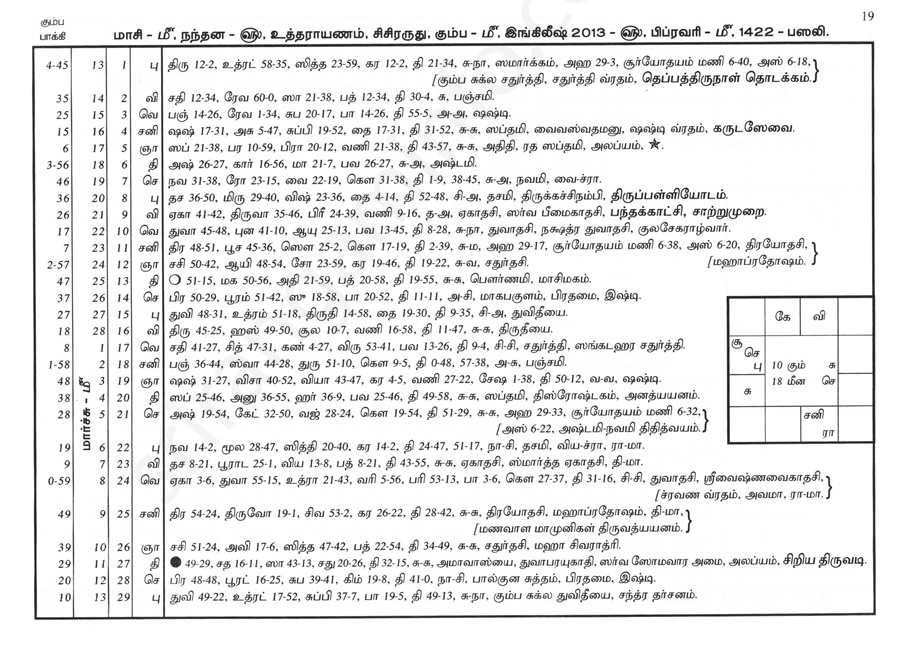 19
கும்ப
பாக்கி மாசி - மீ, நந்தன - ௵, உத்தராயணம், சிசிரருது, கும்ப - மீ, இங்கிலீஷ் 2013 - ௵, பிப்ரவரி - மீ, 1422 - பஸலி.
4-45 13 1 பு திரு 12-2, உத்ரட் 58-35, ஸித்த 23-59, கர 12-2, தி 21-34, சு-நா, ஸமார்க்கம், அஹ 29-3, சூர்யோதயம் மணி 6-40, அஸ் 6-18,
[கும்ப சுக்ல சதுர்த்தி, சதுர்த்தி வ்ரதம், தெப்பத்திருநாள் தொடக்கம்.
35 14 2 வி சதி 12-34, ரேவ 60-0, ஸா 21-38, பத் 12-34, தி 30-4, சு, பஞ்சமி.
25 15 3 வெ பஞ் 14-26, ரேவ 1-34, சுப 20-17, பா 14-26, தி 55-5, அ-அ, ஷஷ்டி.
15 16 4 சனி ஷஷ் 17-31, அசு 5-47, சுப்பி 19-52, தை 17-31, தி 31-52, சு-சு, ஸப்தமி, வைவஸ்வதமனு, ஷஷ்டி வ்ரதம், கருடஸேவை.
6 17 5 ஞா ஸப் 21-38, பர 10-59, பிரா 20-12, வணி 21-38, தி 43-57, சு-சு, அதிதி, ரத ஸப்தமி, அலப்யம், ★.
3-56 18 6 தி அஷ் 26-27, கார் 16-56, மா 21-7, பவ 26-27, சு-அ, அஷ்டமி.
46 19 7 செ நவ 31-38, ரோ 23-15, வை 22-19, கௌ 31-38, தி 1-9, 38-45, சு-அ, நவமி, வை-ச்ரா.
36 20 8 பு தச 36-50, மிரு 29-40, விஷ் 23-36, தை 4-14, தி 52-48, சி-அ, தசமி, திருக்கச்சிநம்பி, திருப்பள்ளியோடம்.
26 21 9 வி ஏகா 41-42, திருவா 35-46, பிரீ 24-39, வணி 9-16, த-அ, ஏகாதசி, ஸர்வ பீமைகாதசி, பந்தக்காட்சி, சாற்றுமுறை.
17 22 10 வெ துவா 45-48, புன 41-10, ஆயு 25-13, பவ 13-45, தி 8-28, சு-நா, துவாதசி, நக்ஷத்ர துவாதசி, குலசேகராழ்வார்.
7 23 11 சனி திர 48-51, பூச 45-36, ஸௌ 25-2, கௌ 17-19, தி 2-39, சு-ம, அஹ 29-17, சூர்யோதயம் மணி 6-38, அஸ் 6-20, திரயோதசி,
2-57 24 12 ஞா சசி 50-42, ஆயி 48-54, சோ 23-59, கர 19-46, தி 19-22, சு-வ, சதுர்தசி. [மஹாப்ரதோஷம்.
47 25 13 தி ○ 51-15, மக 50-56, அதி 21-59, பத் 20-58, தி 19-55, சு-சு, பௌர்ணமி, மாசிமகம்.
37 26 14 செ பிர 50-29, பூரம் 51-42, ஸு 18-58, பா 20-52, தி 11-11, அ-சி, மாகபகுளம், பிரதமை, இஷ்டி.
27 27 15 பு துவி 48-31, உத்ரம் 51-18, திருதி 14-58, தை 19-30, தி 9-35, சி-அ, துவிதீயை.
18 28 16 வி திரு 45-25, ஹஸ் 49-50, சூல 10-7, வணி 16-58, தி 11-47, சு-சு, திருதீயை.
8 1 17 வெ சதி 41-27, சித் 47-31, கண் 4-27, விரு 53-41, பவ 13-26, தி 9-4, சி-சி, சதுர்த்தி, ஸங்கடஹர சதுர்த்தி.
1-58 2 18 சனி பஞ் 36-44, ஸ்வா 44-28, துரு 51-10, கௌ 9-5, தி 0-48, 57-38, அ-சு, பஞ்சமி.
48 3 19 ஞா ஷஷ் 31-27, விசா 40-52, வியா 43-47, கர 4-5, வணி 27-22, சேஷ 1-38, தி 50-12, வ-வ, ஷஷ்டி.
38 4 20 தி ஸப் 25-46, அனு 36-55, ஹர் 36-9, பவ 25-46, தி 49-58, சு-சு, ஸப்தமி, திஸ்ரோஷ்டகம், அனத்யயனம்.
28 5 21 செ அஷ் 19-54, கேட் 32-50, வஜ் 28-24, கௌ 19-54, தி 51-29, சு-சு, அஹ 29-33, சூர்யோதயம் மணி 6-32,
[அஸ் 6-22, அஷ்டமி-நவமி திதித்வயம்.
19 6 22 பு நவ 14-2, மூல 28-47, ஸித்தி 20-40, கர 14-2, தி 24-47, 51-17, நா-சி, தசமி, விய-ச்ரா, ரா-மா.
9 7 23 வி தச 8-21, பூராட 25-1, விய 13-8, பத் 8-21, தி 43-55, சு-சு, ஏகாதசி, ஸ்மார்த்த ஏகாதசி, தி-மா.
0-59 8 24 வெ ஏகா 3-6, துவா 55-15, உத்ரா 21-43, வரி 5-56, பரி 53-13, பா 3-6, கௌ 27-37, தி 31-16, சி-சி, துவாதசி, ஸ்ரீவைஷ்ணவைகாதசி,
[ச்ரவண வ்ரதம், அவமா, ரா-மா.
49 9 25 சனி திர 54-24, திருவோ 19-1, சிவ 53-2, கர 26-22, தி 28-42, சு-சு, திரயோதசி, மஹாப்ரதோஷம், தி-மா,
[மணவாள மாமுனிகள் திருவத்யயனம்.
39 10 26 ஞா சசி 51-24, அவி 17-6, ஸித்த 47-42, பத் 22-54, தி 34-49, சு-சு, சதுர்தசி, மஹா சிவராத்ரி.
29 11 27 தி ● 49-29, சத 16-11, ஸா 43-13, சது 20-26, தி 32-15, சு-சு, அமாவாஸ்யை, துவாபரயுகாதி, ஸர்வ ஸோமவார அமை, அலப்யம், சிறிய திருவடி.
20 12 28 செ பிர 48-48, பூரட் 16-25, சுப 39-41, கிம் 19-8, தி 41-0, நா-சி, பால்குன சுத்தம், பிரதமை, இஷ்டி.
10 13 29 பு துவி 49-22, உத்ரட் 17-52, சுப்பி 37-7, பா 19-5, தி 49-13, சு-நா, கும்ப சுக்ல துவிதீயை, சந்த்ர தர்சனம்.
மார்ச்சு - மீ
கே வி
சூ
செ
பு
10 கும் சு
18 மீன செ
சு
சனி
ரா